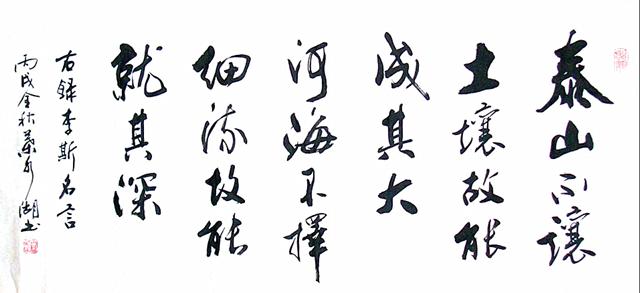 泰山不讓
土壤故能
成其大
河海不擇
細流故能
就其深
右録李斯名言
丙戌金秋 湖书